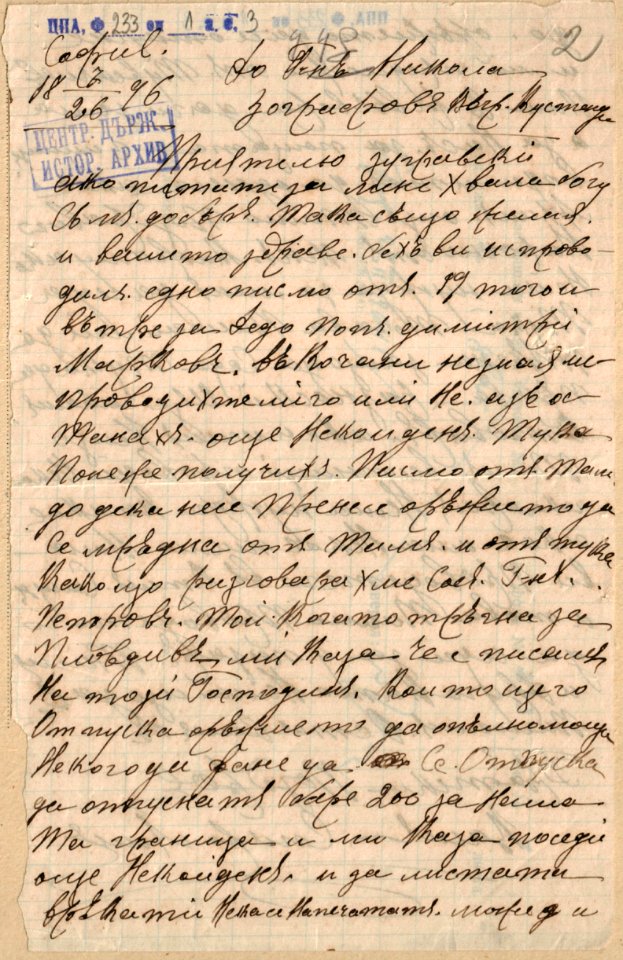 ЦПА, Ф 233 оп 1 а. е. 3
2
Софиѧ.
18 26/V 96
до Г-нъ Никола
Зографовъ Въгр. Кустенди
ЦЕНТР. ДЪРЖ.
ИСТОР. АРХИВ
Приятелю зуграфски
ако питати за мене хвала богу
съмъ. добъръ. Така също желая.
и вашито здраве. бехъ ви испрово-
дилъ. едно писмо отъ. 19 того и
вътре за дедо попъ. димитрй
Марковъ. въ Кочани незная ис-
проводихтели го или не. азъ ос-
танахъ. още некои денъ. Тука
понеже получихъ. писмо отъ. Там
до дека не се пренесе оръжието да
се мръдна отъ Тамъ. и отъ тука
како що разговарахме съсъ. Г-нъ.
Петровъ. Той когато тръгна за
Пловдивъ ми каза че е писалъ
на този Господинъ. който ще го
отпуска оръжието да опълномощи
некогоди дане да се. отпуска
да отпуснатъ баре 200 за наша
та граница и ми каза поседи
още некойденъ. и да листати
връкати нека се напечататъ. може д и